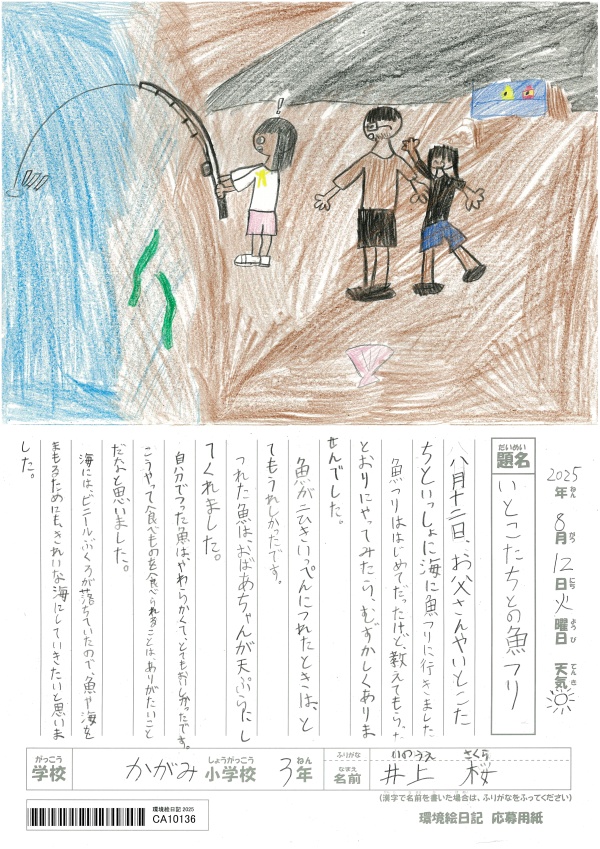 2025年ねん8月がつ12日にち火曜日ようび 天気てんき
だいめい
題名
いとこたちとの魚つり
八月十二日、お父さんやいとこた
ちといっしょに海に魚つりに行きました。
魚つりははじめてだったけど、教えてもらった
とおりにやってみたら、むずかしくありま
せんでした。
魚が二ひきいっぺんにつれたときは、と
てもうれしかったです。
つれた魚は、おばあちゃんが天ぷらにし
てくれました。
自分でつった魚は、やわらかくて、とてもおいしかったです。
こうやって食べものを食べられることは、ありがたいこと
だなと思いました。
海にはビニールぶくろが落ちていたので、魚や海を
まもるためにも、きれいな海にしていきたいと思いま
した。
がっこう しょうがっこう ねん
学校 かがみ小学校 3年
ふりがな いのうえ さくら
なまえ
名前 井上 桜
(漢字で名前を書いた場合は、ふりがなをふってください)
環境絵日記 2025
CA10136
環境絵日記 応募用紙